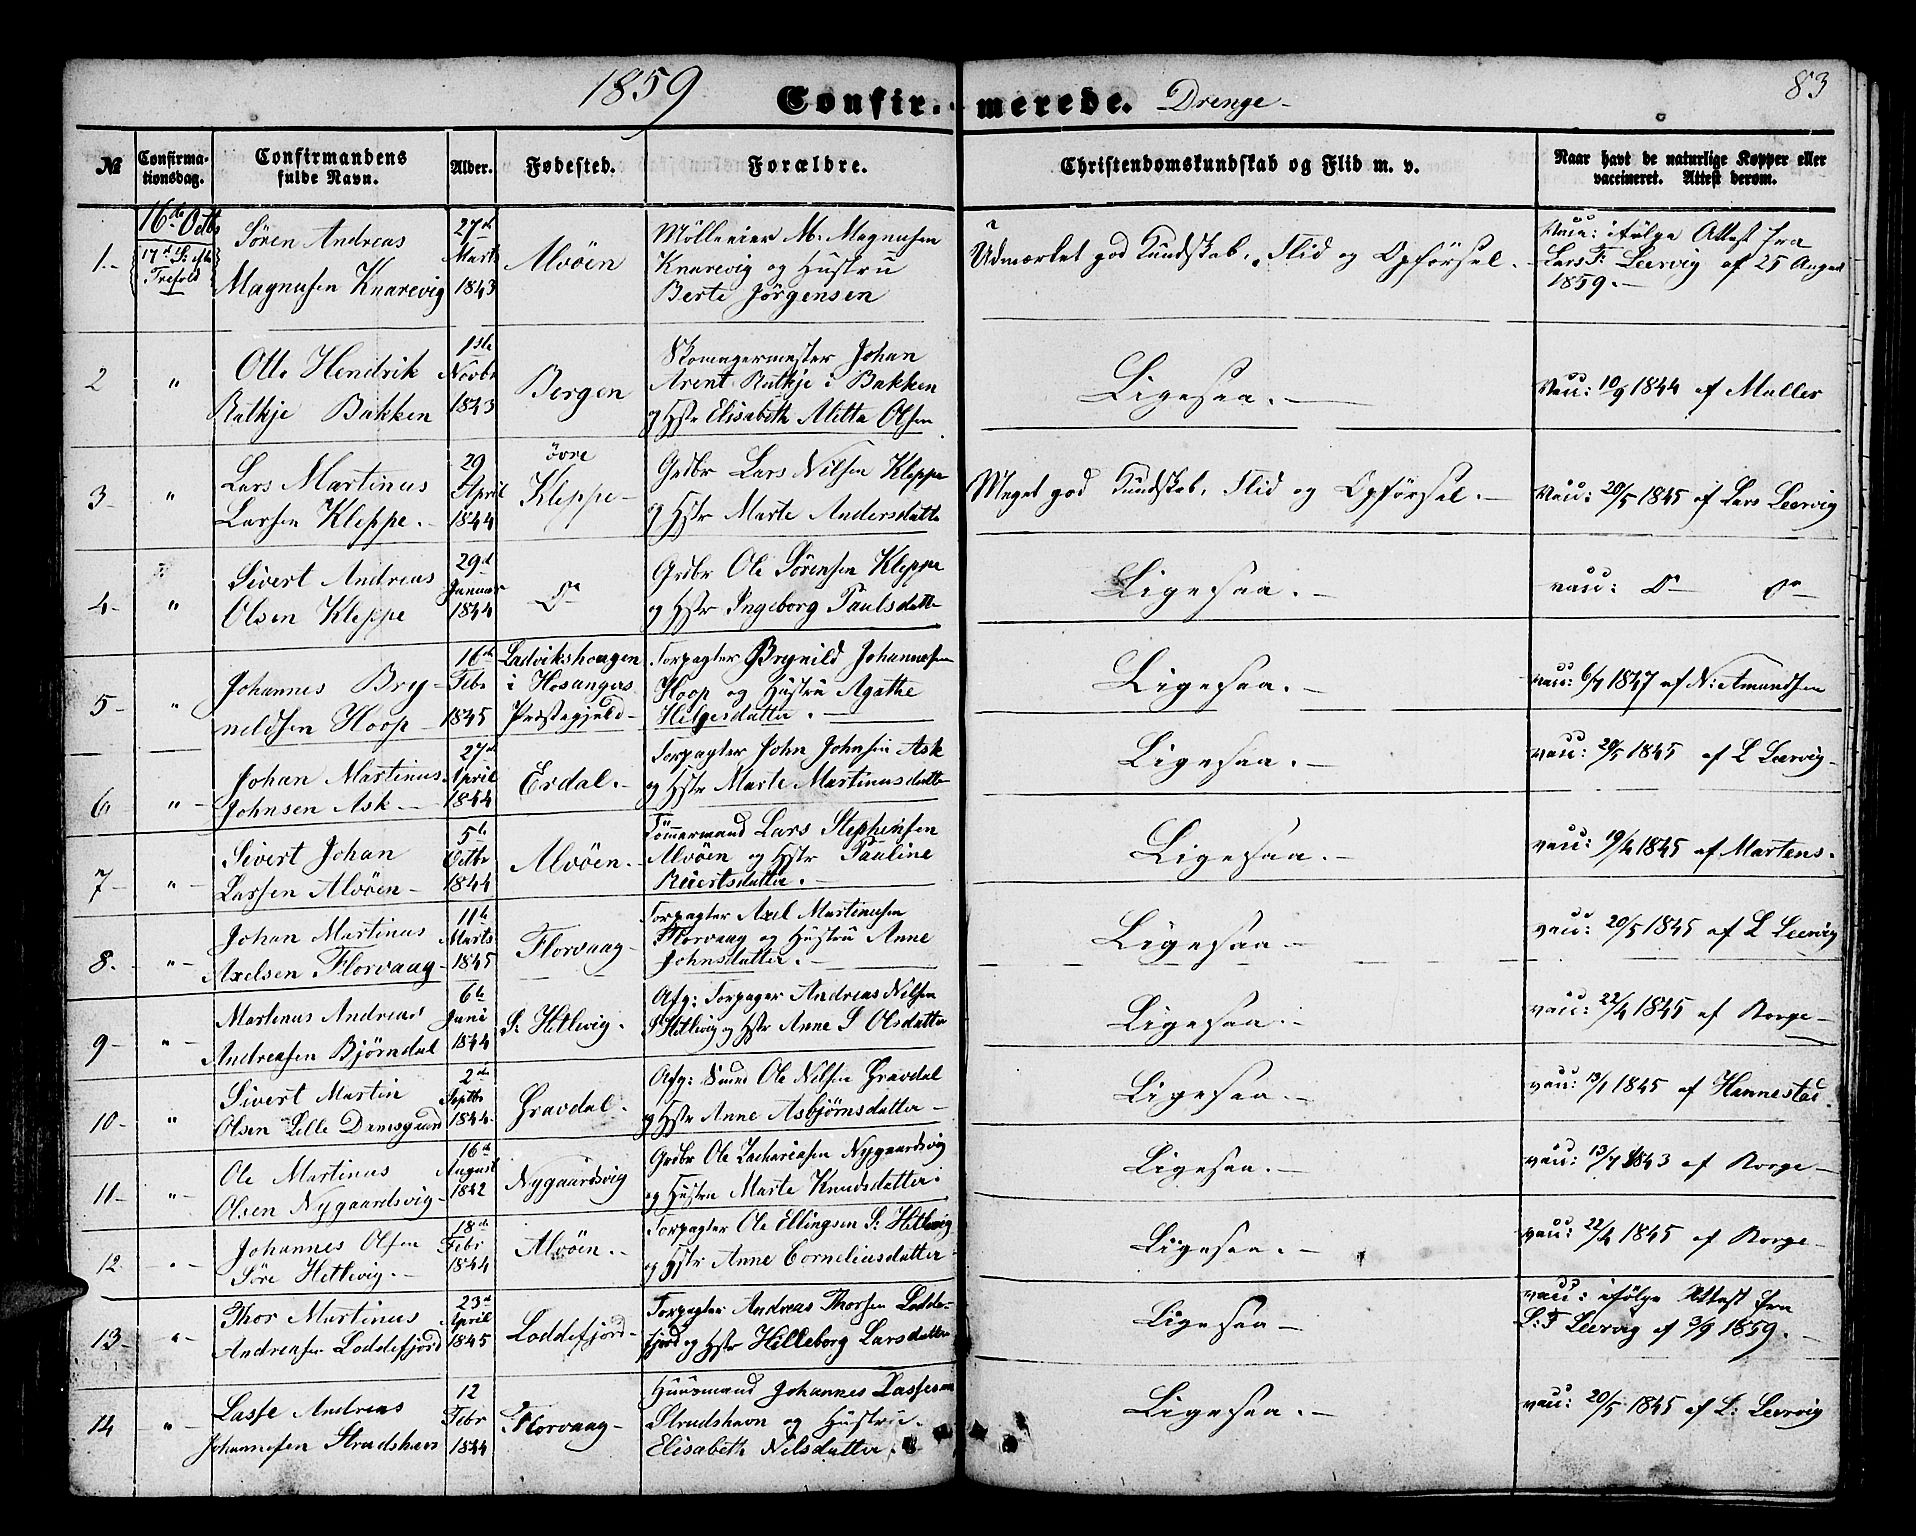 1859
Confirmerede. Drenge
83
№
Confirmationsdag.
Confirmandens fulde Navn.
Alder.
Fødested.
Forældre.
Christendomskundskab og Flid m. v.
Naar havt de naturlige Kopper eller vaccineret. Attest derom.
1.
16de Octbr
17d S: efth Trefold
Søren Andreas
Magnusen Knarevig
27d Marts 1843
Alvöen
Mölleeier M. Magnusen
Knarevig og Hustru
Berte Jörgensen
Udmærket god Kundskab, Flid og Opförsel.
Vacc: ifölge Attest fra
Lars T. Leervig af 25 August
1859.
2 "
Otto Hendrik
Ratkje Bakken
1ste Novbr 1843
Bergen
Skomagermester Johan
Arent Ratkje i Bakken
og Hstr Elisabeth Mitta Olsen
Ligesaa.
Vacc: 10/9 1844 af Muller
3 "
Lars Martinus
Larsen Kleppe.
29 April 1844
Övre Kleppe
Grdbr Lars Nilsen Kleppe
og Hstr Marte Andersdatter
Meget god Kundskab, Flid og Opförsel.
Vacc: 20/5 1845 af Lars Leervig
4 "
Sivert Andreas
Olsen Kleppe
29d Januar 1844
Do
Grdbr Ole Sörensen Kleppe
og Hstr Ingeborg Paulsdatter
Ligesaa.
vacc: Do Do
5 "
Johannes Bry-
neldsen Hoop
16d Febr 1845
Ladvikshougen
i Hosangers
Præstegjeld
Torpagter Brynild Johannesen
Hoop og Hustru Agathe
Helgesdatter.
Ligesaa.
vacc: 6/7 1847 af N: Amundsen
6 "
Johan Martinus
Johnsen Ask
27d April 1844
Erdal.
Torpagter John Johnsen Ask
og Hstr Marte Martinusdatter
Ligesaa.
vacc: 20/5 1845 af L Leervig
7 "
Sivert Johan
Larsen Alvöen
5te Octbr 1844
Alvöen.
Tömmermand Lars Stephensen
Alvöen og Hstr Pauline
Reiertsdatter.
Ligesaa.
vacc: 19/4 1845 af Martens.
8. "
Johan Martinus
Axelsen Florvaag
11te Marts 1845
Florvaag
Torpagter Axel Martinusen
Florvaag og Hustru Anne
Johnsdatter.
Ligesaa
vacc: 20/5 1845 af L Leervig
9 "
Martinus Andreas
Andreasen Björndal
6te Juni 1844
S: Hetlevig.
Afg: Torpager Andreas Nilsen
S Hetlevig og Hstr Anne S Olsdatter
Ligesaa.
vacc: 22/4 1845 af Korge
10 "
Sivert Martin
Olsen Lille Damsgaard
2d Septbr 1844.
Gravdal.
Afg: Smed Ole Nilsen Gravdal
og Hstr Anne Asbjörnsdatter
Ligesaa.
vacc: 13/1 1845 af Hannestad.
11 "
Ole Martinus
Olsen Nygaardsvig
16de August 1842
Nygaardsvig
Grdbr Ole Zachariasen Nygaardsvig
og Hustru Marte Knudsdatter.
Ligesaa.
vacc: 13/7 1843 af Korge
12 "
Johannes Olsen
Söre Hetlevig.
18de Febr 1844
Alvöen.
Torpagter Ole Ellingsen S: Hetlevig
og Hstr Anne Corneliusdatter
Ligesaa.
vacc: 22/4 1845 af Korge
13 "
Thor Martinus
Andreasen Loddefjord
23d April 1845
Loddefjord
Torpagter Andreas Thorsen Lodde-
fjord og Hstr Hilleborg Larsdatter
Ligesaa
vacc: ifölge Attest fra
L: T Leervig af 3/9 1859.
14 "
Lasse Andreas
Johannesen Strudshavn
12 Febr 1844
Florvaag
Huusmand Johannes Lassesen
Strudshavn og Hustru
Elisabeth Nilsdatter.
Ligesaa.
vacc: 20/5 1845 af L: Leervig